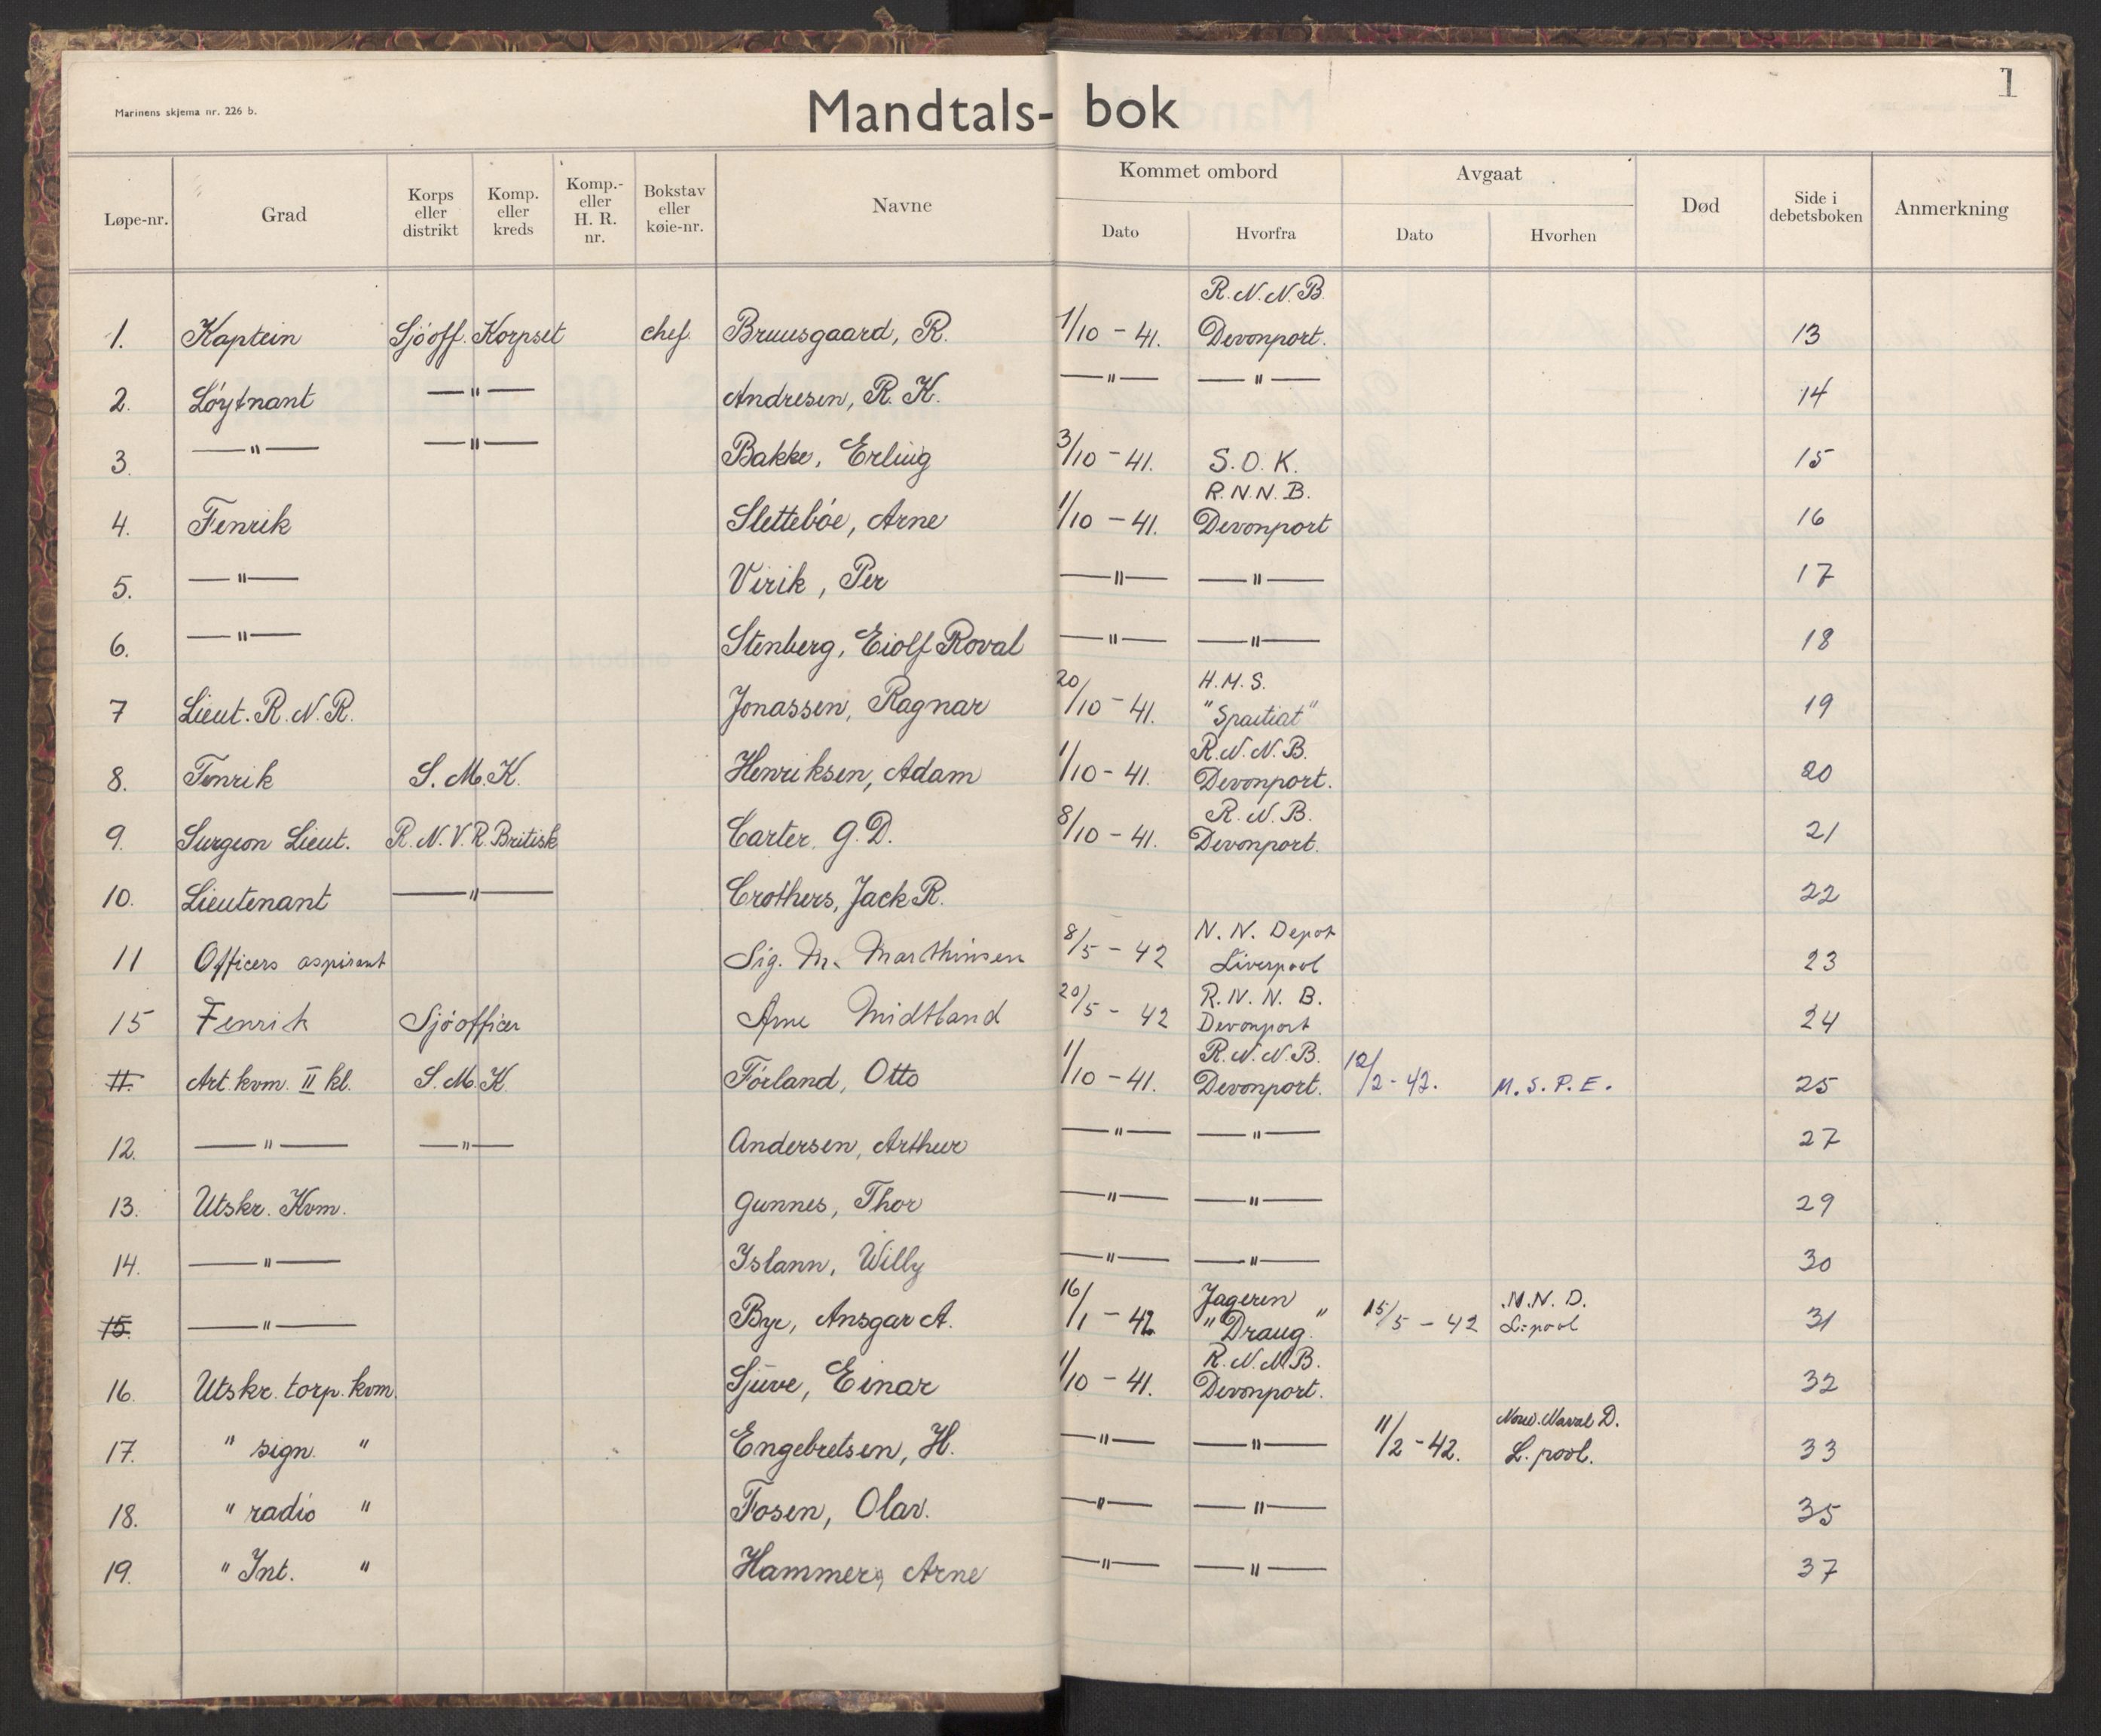 1
Marinens skjema nr. 226 b.
Mandtals- bok
Løpe-nr. Grad Korps eller distrikt Komp. eller kreds Komp.- eller H. R. nr. Bokstav eller køie-nr. Navne Kommet ombord Dato Hvorfra Avgaat Dato Hvorhen Død Side i debetsboken Anmerkning
1. Kaptein Sjöoff. Korpset chef. Bruusgaard, R. 1/10 - 41. R.N.N.B. Devonport. 13
2. Löytnant —"— Andresen, R. K. —"— —"— 14
3. —"— —"— Bakke, Erling 3/10 - 41. S.O.K. 15
4. Fenrik Slettebøe, Arne 1/10 - 41. R.N.N.B. Devonport 16
5. —"— Virik, Per —"— —"— 17
6. —"— Stenberg, Eiolf Roval —"— —"— 18
7 Lieut. R.N.R. Jonassen, Ragnar 20/10 - 41. H.M.S. "Spartiat" 19
8. Fenrik S.M.K. Henriksen, Adam 1/10 - 41. R.N.N.B. Devonport. 20
9. Surgeon Lieut. R.N.V.R. Britisk Carter. G.D. 8/10 - 41. R.N.B. Devonport. 21
10. Lieutenant —"— Crothers, Jack R. 22
11 Officers aspirant Sig. M. Marthinsen 8/5 - 42 N.N. Depot Liverpool 23
15 Fenrik Sjöofficer Arne Midtland 20/5 - 42 R.N.N.B. Devonport 24
11. Art. kvm. II kl. S.M.K. Förland, Otto 1/10 - 41. R.N.N.B. Devonport. 12/2 - 42. M.S.P.E. 25
12. —"— —"— Andersen, Arthur —"— —"— 27
13. Utskr. Kvm. Gunnes, Thor —"— —"— 29
14. —"— Islann, Willy —"— —"— 30
15. —"— Bye, Ansgar A. 16/1 - 42 Jageren "Draug." 15/5 - 42 N.N.D. L-pool 31
16. Utskr. torp. kvm. Sjuve, Einar 1/10 - 41. R.N.N.B. Devonport. 32
17. " sign. " Engebretsen, H. —"— —"— 11/2 - 42. Norw. Naval D. L. pool. 33
18. " radio " Fosen, Olav. —"— —"— 35
19. " Int. " Hammer, Arne —"— —"— 37